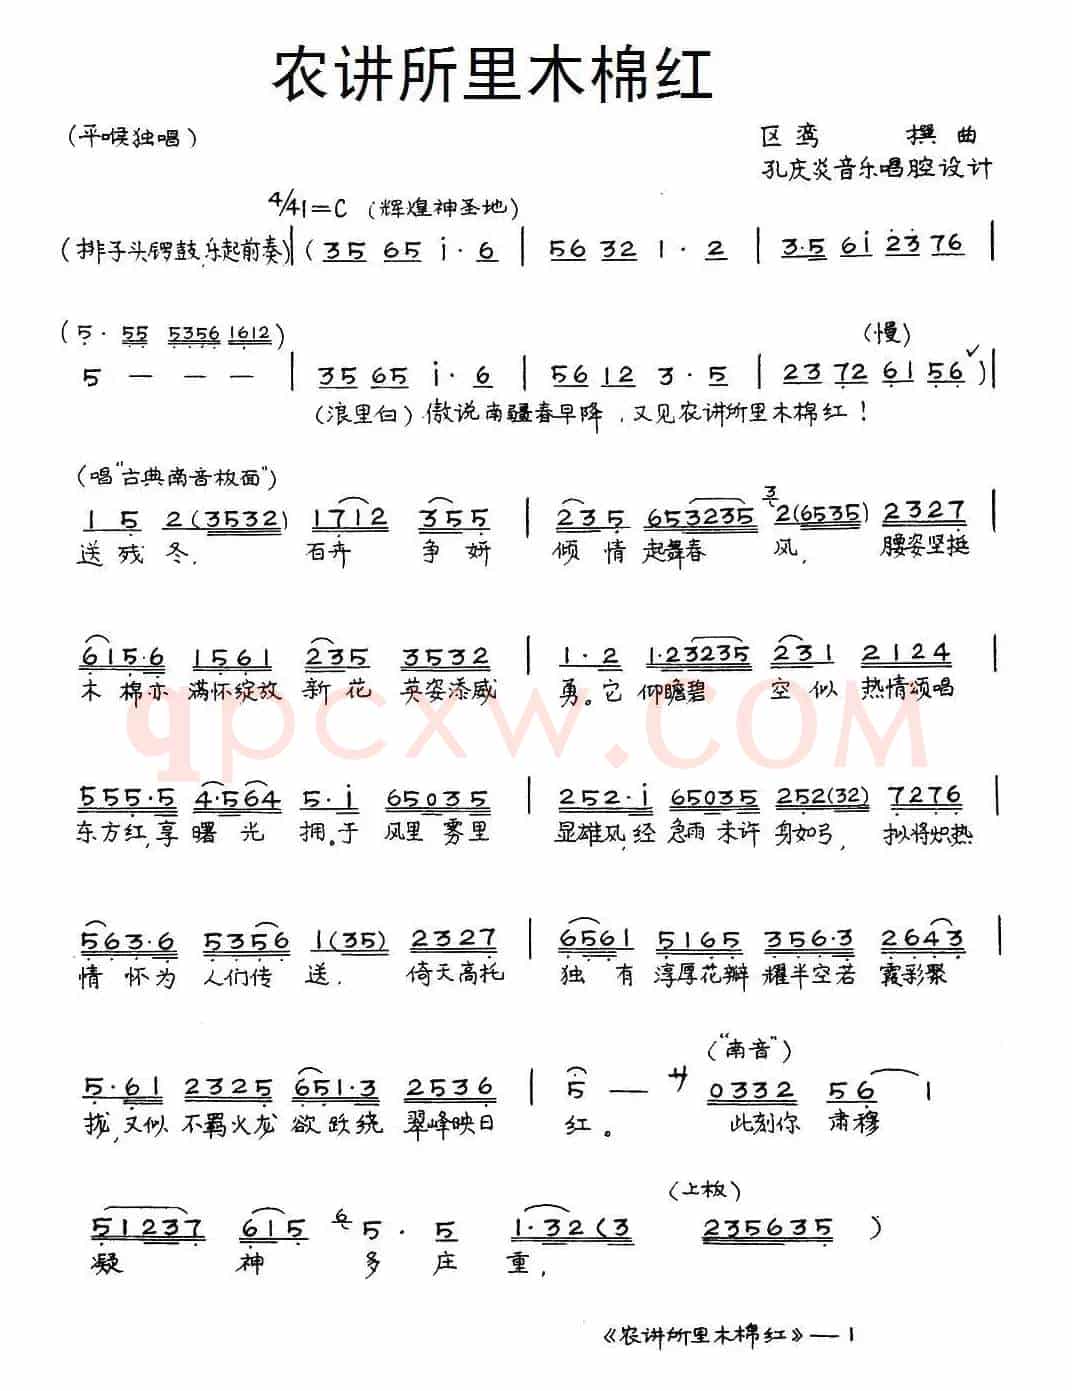 农讲所里木棉红
(平喉独唱) 区鸾 撰曲
孔庆炎音乐唱腔设计
4/4 1=C (辉煌神圣地)
(排子头锣鼓,乐起前奏)| (35 65 i·6 | 56 32 1·2 | 3·5 6i 2376 |
(5·55 5356 1612)
(慢)
5 — — — | 35 65 i·6 | 56 12 3·5 | 23 72 61 56)|
(浪里白)傲说南疆春早降,又见农讲所里木棉红!
(唱“古典南音板面”)
15 2(3532) 1712 355 | 235 653235 3 2(6535) 2327 |
送残冬. 百卉争妍 倾情起舞春风, 腰姿坚挺
615·6 1561 235 3532 | 1·2 1·23235 231 2124 |
木棉亦满怀绽放新花英姿添威 勇。它仰瞻碧空似热情颂唱
qpcxw.COM
555·5 4·564 5·i 65035 | 252·i 65035 252(32) 7276 |
东方红,享曙光拥。于风里雾里 显雄风,经急雨未许身如弓, 拟将炽热
563·6 5356 1(35) 2327 | 6561 5165 356·3 2643 |
情怀为人们传送. 倚天高托 独有淳厚花瓣耀半空若霞彩聚
(“南音”)
5·61 2325 651·3 2536 | 5 — サ 0332 56 1
拢,又似不羁火龙欲跃绕翠峰映日 红。 此刻你肃穆
(上板)
51237 615 6 5·5 1·32(3 235635)
凝神多庄重,
《农讲所里木棉红》—1